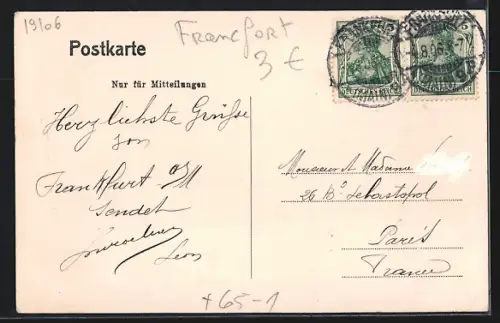 19/06
Francfort
3 €
Postkarte
Nur für Mitteilungen
Herzlichste Grüsse
von
Frankfurt o/M
sendet
Leon
Monsieur et Madame
26 Bd Sebastopol
Paris
France
+65-1